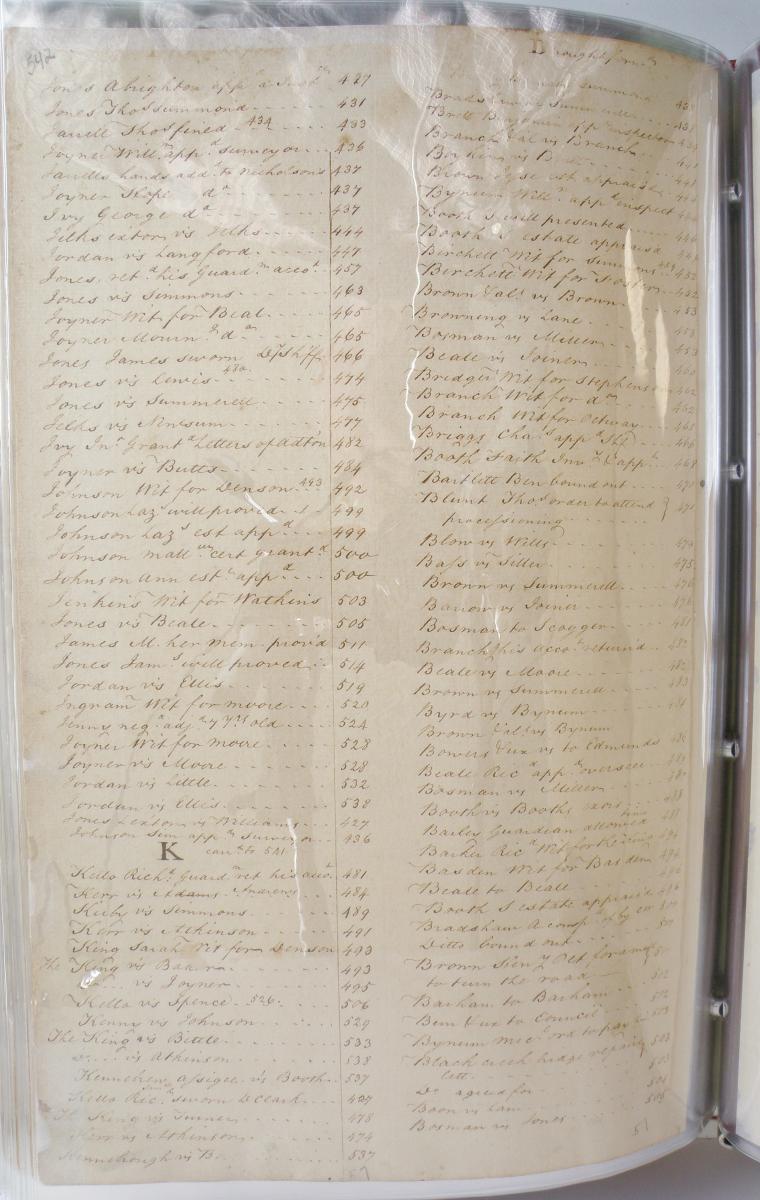 542
Jones Abrighton app.d Const 427
Jones Tho.s summond 431
Jarrell Tho.s fined 434 433
Joyner Will.m app.d surveyor 436
Jarrells hands add.d to Nicholson's 437
Joyner Hope d.o 437
Ivy George d.o 437
Jelks extors vs Jelks 444
Jordan vs Langford 447
Jones, ret.d his Guard.n acco.t 457
Jones vs Simmons 463
Joyner Wit. for Beal 465
Joyner Mourn.g d.o 465
Jones James sworn D.y Shff 466
Jones vs Lewis 480 474
Jones vs Summerell 475
Jelks vs Newsum 477
Ivy Jn.o Grant.d Letters of adtōn 482
Joyner vs Butts 484
Johnson Wit for Denson 493 492
Johnson Laz.s will proved 499
Johnson Laz.s est app.d 499
Johnson Matt.w cert grant.d 500
Johnson Ann est.e app.d 500
Jenkins Wit for Watkins 503
Jones vs Beale 505
James M. her mem. prov'd 511
Jones Jam.s will proved 514
Jordan vs Ellis 519
Ingram Wit for moore 520
Jenny neg.o adj.d 7 y.rs old 524
Joyner Wit for moore 528
Joyner vs Moore 528
Jordan vs Little 532
Jordan vs Ellis 538
Jones extors vs Williams 427
Johnson Sim app.d Surveyor 436
K
car.d to 541
Kello Rich.d Guard.n ret his acco.t 481
Kerr vs Adams Andrews 484
Kirby vs Simmons 489
Kerr vs Atkinson 491
King Sarah Wit for Denson 493
The King vs 493
vs Joyner 495
Kello vs Spence 526 506
Kenny vs Johnson 529
The King vs Bittle 533
D.o vs Atkinson 538
assigee vs Booth 537
Kello Ric.d sworn D Clerk 427
The King vs Turner 478
Kerr vs Atkinson 474
vs 537
Brought for.d
summond
Brett Benjamin app inspector
Branch &al vs Branch
Boykin vs
Brown est appraised
Bynum Will.m app.d inspect
Booth S will presented
Booth S estate appraisd
Birchett Wit for Simmons
Birchett Wit for 452
Brown &al vs Brown 453
Browning vs Lane 453
Bosman vs Miller 453
Beale vs Joiner 460
Bridger Wit for Stephens 462
Branch Wit for d.o 462
Branch Wit for Ottway 465
Briggs Cha.s app.d Shf 466
Booth Faith Inv.y & app 468
Bartlett Ben bound out 471
Blunt Tho.s order to attend } 471
processioning
Blow vs Wills 474
Bass vs Siller 475
Brown vs Summerell 476
Barrow vs Joiner 476
Bosman to Scoggen 481
Branch his acco.t return'd 482
Beale vs Moore 482
Brown vs Summerell 483
Byrd vs Bynum 484
Brown &al vs Bynum
Bowers &ux vs to Edmunds 486
Beale Ric.d app.d overseer 487
Bosman vs Miller 487
Booth vs Booths exors 488
Bailey Guardian allowed time 488
Barker Ric.d Wit for the King 494
Basden Wit for Basden 494
Beale to Beale 496
Booth S estate appraisd 496
Bradshaw A comp.t of by 500
Ditto bound out 500
Brown Pet for
to turn the road
Barham to Barham 502
Benn &ux to Council 502
Bynum Mic.l ord to pay 503
Black creek bridge repairs 503
lett
D.o agreed for 504
Boon vs Cain 505
Bosman vs Jones